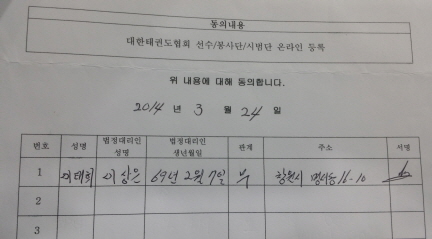 동의내용
대한태권도협회 선수/봉사단/시범단 온라인 등록
위 내용에 대해 동의합니다.
2014 년 3 월 24 일
번호 성명 법정대리인 성명 법정대리인 생년월일 관계 주소 서명
1 이태희 이상은 69년 2월 7일 부 창원시 명서동 16-10
2
3